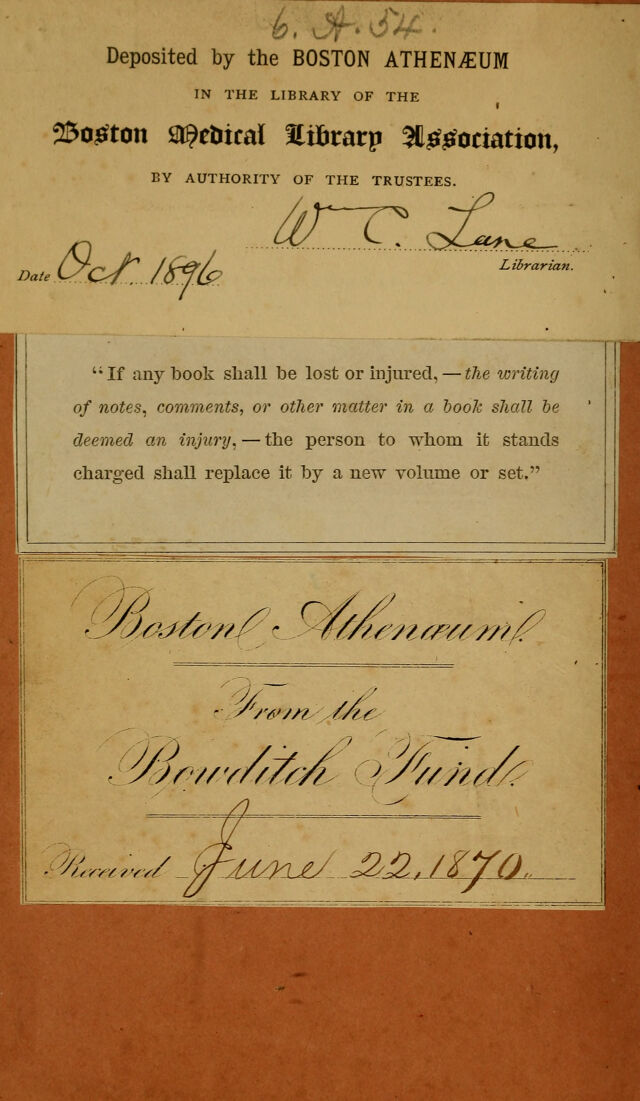 6. A. 54.
Deposited by the BOSTON ATHENÆUM
IN THE LIBRARY OF THE
Boston Medical Library Association,
BY AUTHORITY OF THE TRUSTEES.
Wm C. Lane
Librarian.
Date Oct. 1896
“If any book shall be lost or injured, — the writing
of notes, comments, or other matter in a book shall be
deemed an injury, — the person to whom it stands
charged shall replace it by a new volume or set.”
Boston Athenæum.
From the
Bowditch Fund.
Received June 22, 1870.